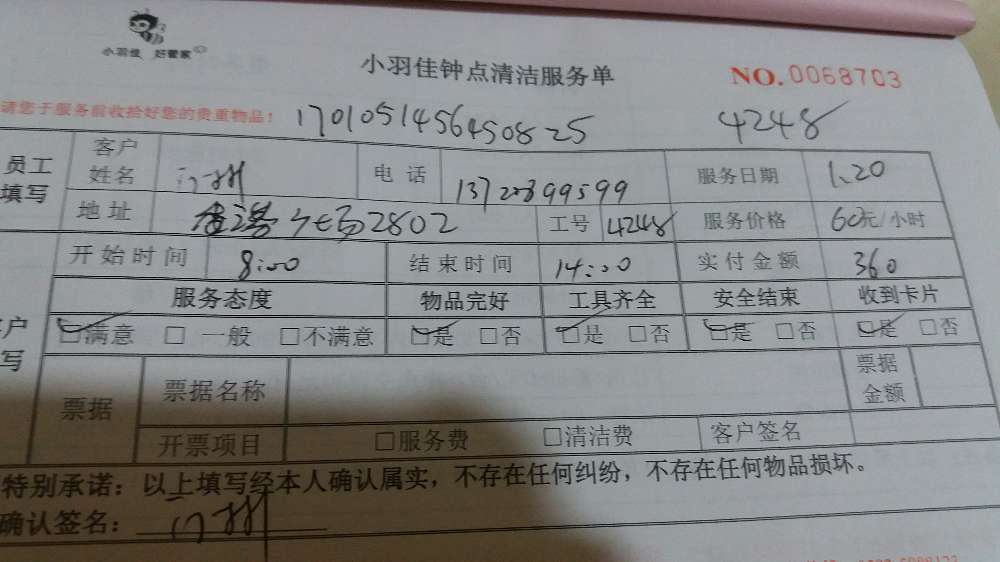 小羽佳 好管家
小羽佳钟点清洁服务单
NO.0068703
请您于服务前收拾好您的贵重物品!
1701051456450825 4248
员工填写
客户姓名 电话 13720899599 服务日期 1.20
地址 2802 工号 4248 服务价格 60元/小时
开始时间 8:00 结束时间 14:00 实付金额 360
服务态度 物品完好 工具齐全 安全结束 收到卡片
户写
☑满意 □一般 □不满意 ☑是 □否 ☑是 □否 ☑是 □否 ☑是 □否
票据 票据名称 票据金额
开票项目 □服务费 □清洁费 客户签名
特别承诺:以上填写经本人确认属实,不存在任何纠纷,不存在任何物品损坏。
确认签名: